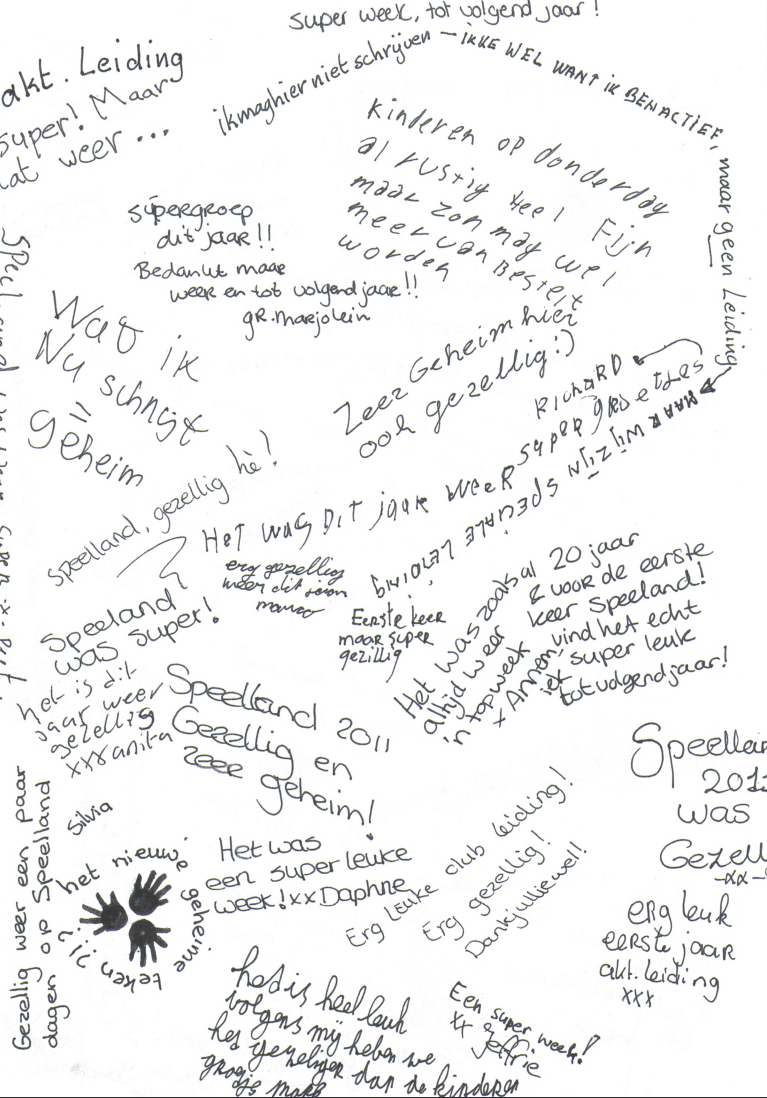 super week, tot volgend jaar!
akt. Leiding
super! Maar
wat weer ...
ikmaghier niet schrijven – IKKE WEL WANT IK BEN ACTIEF, maar geen Leiding
MAAR WIJ ZIJN SPECIALE LEIDING
kinderen op donderdag
al rustig heel Fijn
maar zon mag wel
meer van Besteld
worden
supergroep
dit jaar!!
Bedankt maar
weer en tot volgend jaar!!
gr. marjolein
Wat ik
Nu schrijft
=
geheim
Zeer Geheim hier
ook gezellig :)
RichaRD
Het was Dit jaar weer super groetjes
Speelland, gezellig hè!
erg gezellig
weer dit jaar
marco
Eerste keer
maar super
gezillig
Het was zoals al 20 jaar
altijd weer
'n topweek
x Annem
& voor de eerste
keer Speeland!
vind het echt
super leuk
tot volgend jaar!
Speeland
was super!
het is dit
jaar weer
gezellig
xxx anita
Speelland 2011
Gezellig en
zeer geheim!
2011
was
-xx-
Silvia
Gezellig weer een paar
dagen op Speelland
het nieuwe geheime teken
Het was
een super leuke
week! xx Daphne
Erg Leuke club leiding!
Erg gezellig!
Dankjulliewel!
erg leuk
eerste jaar
akt. leiding
xxx
het is heel leuk
volgens mij heben we
het gezeliger dan de kinderen
Een super week!
xx Jeffrie